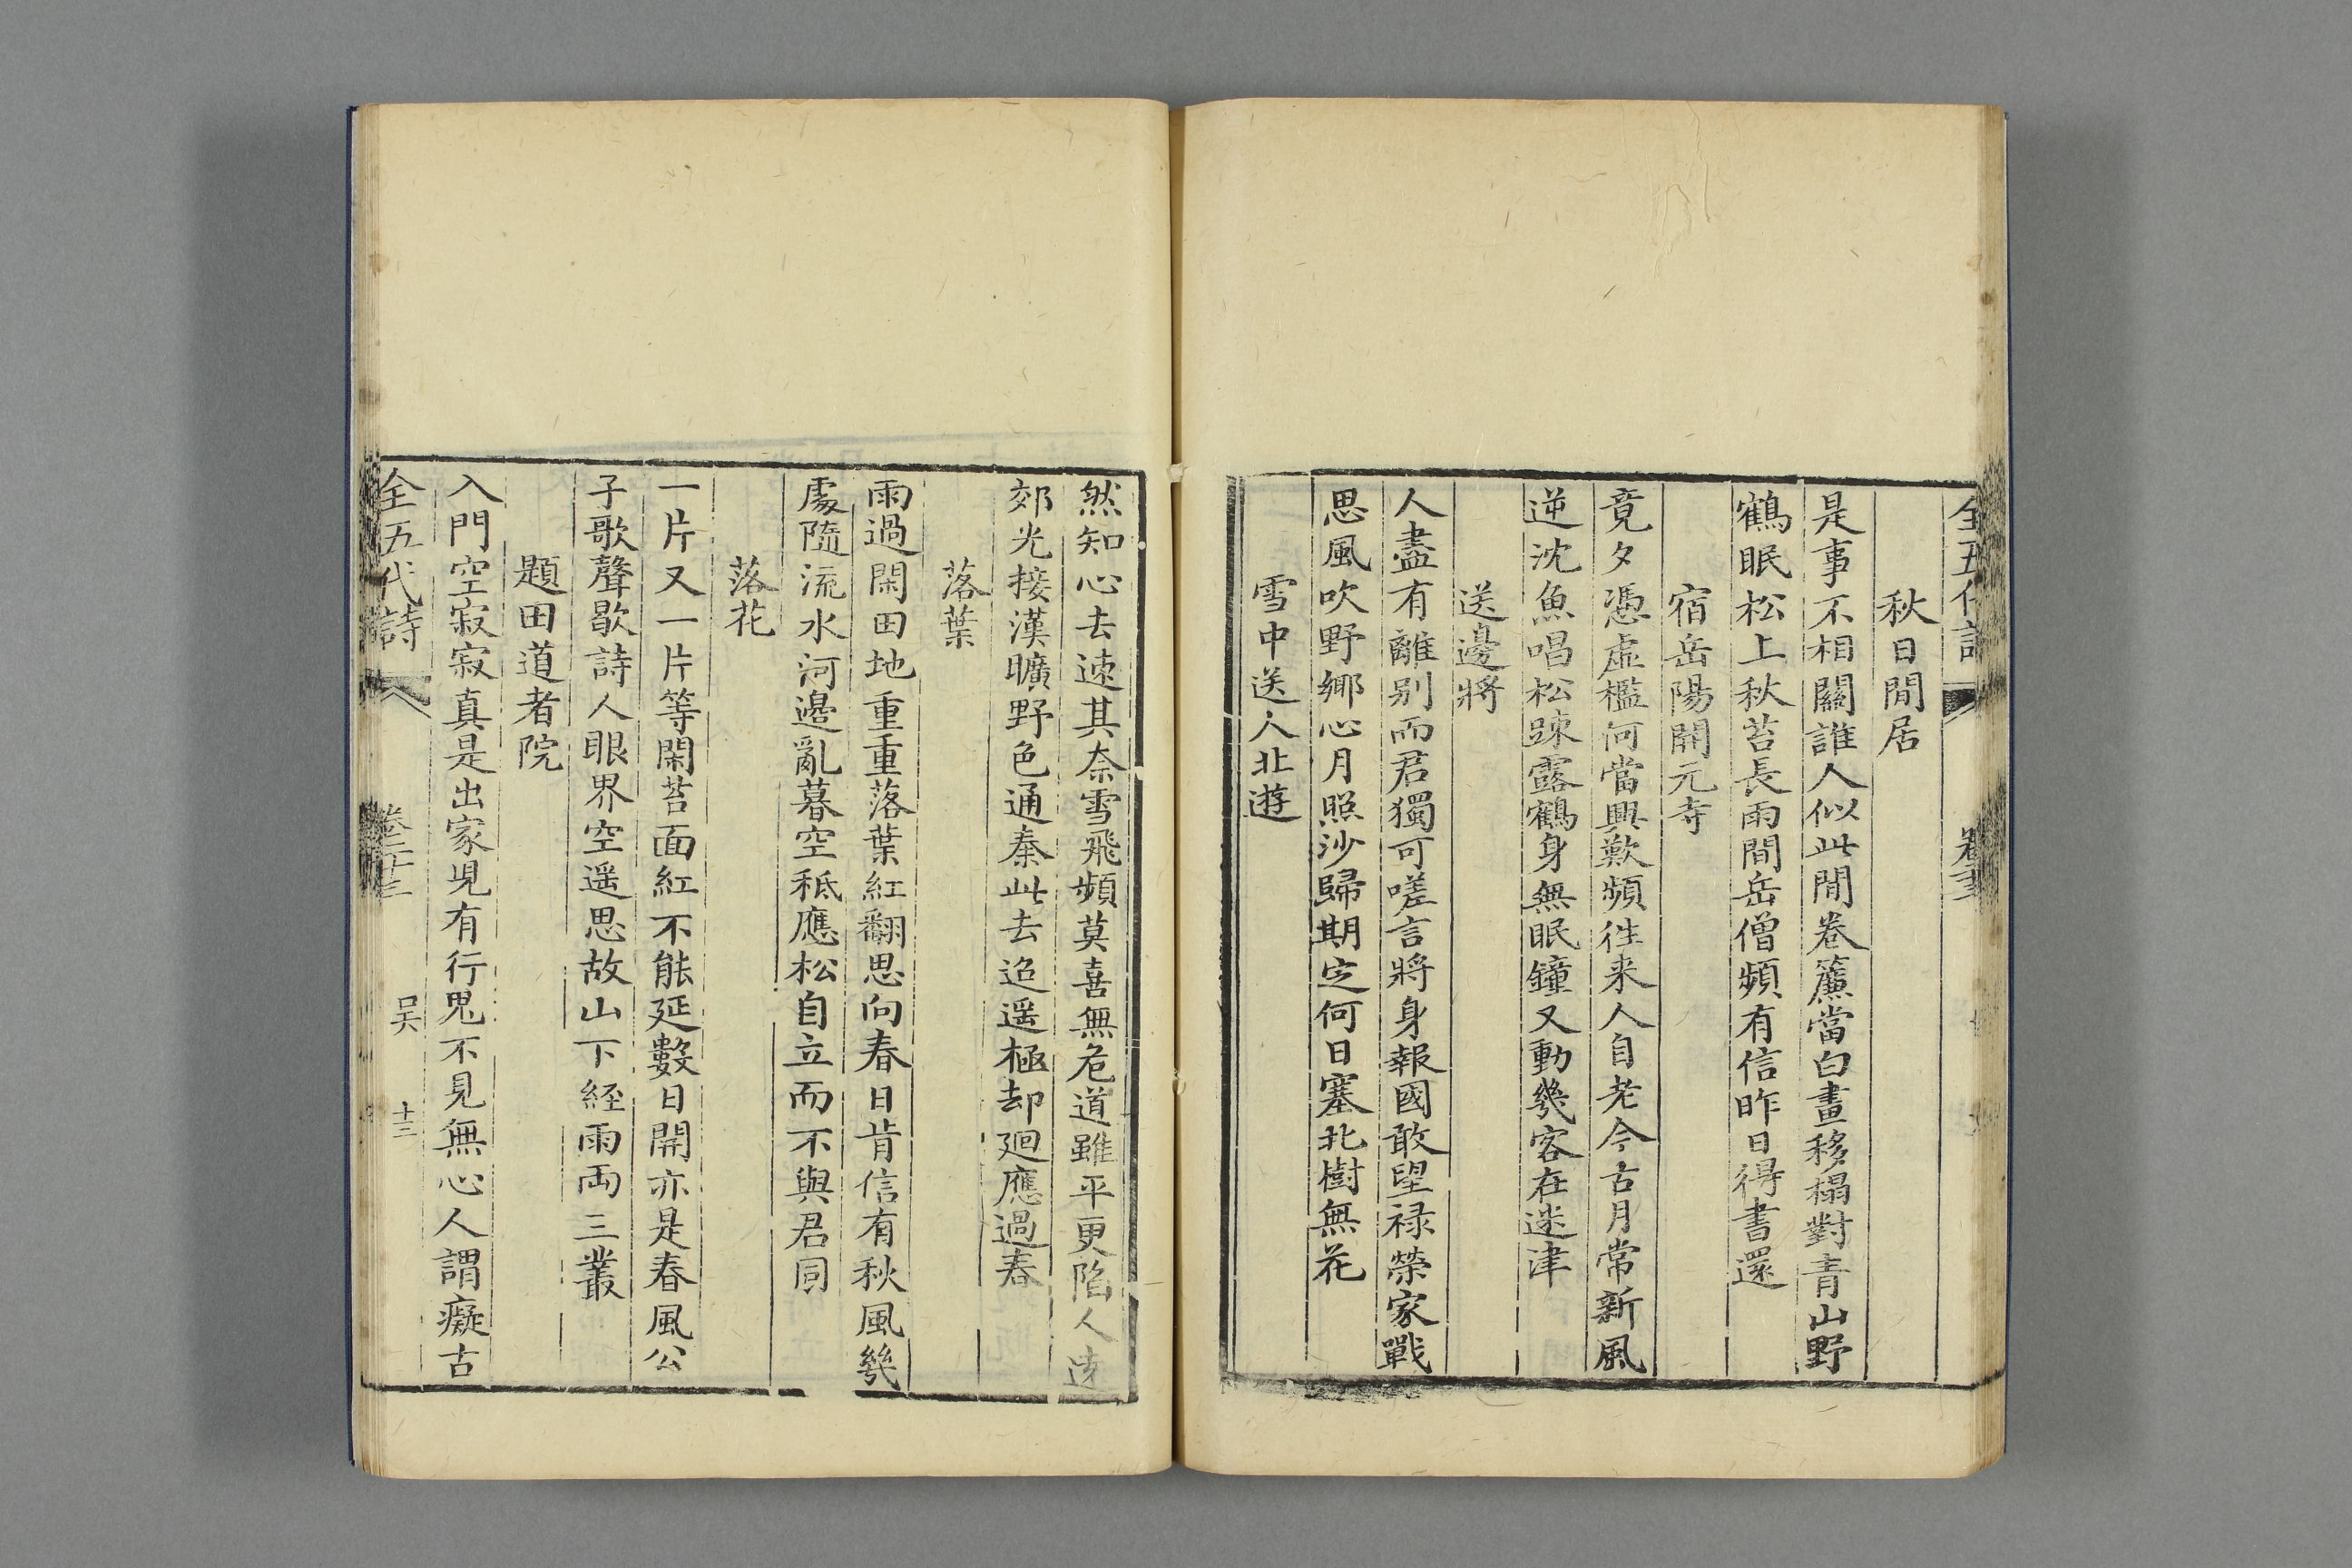 全五代詩
秋日閒居
是事不相關誰人似此閒卷簾當白晝移榻對青山野
鶴眠松上秋苔長雨間岳僧頻有信昨日得書還
宿岳陽開元寺
竟夕憑虛檻何當興歎頻徃来人自老今古月常新風
逆沈魚唱松踈露鶴身無眠鐘又動幾客在迷津
送邊將
人盡有離别而君獨可嗟言將身報國敢望禄榮家戰
思風吹野鄉心月照沙歸期定何日塞北樹無花
雪中送人北遊
然知心去速其奈雪飛頻莫喜無危道雖平更陷人遠
郊光接漢曠野色通秦此去迢遥極却廻應過春
落葉
雨過閑田地重重落葉紅翻思向春日肯信有秋風幾
處隨流水河邊亂暮空秪應松自立而不與君同
落花
一片又一片等閑苔面紅不能延數日開亦是春風公
子歌聲歇詩人眼界空遥思故山下經雨兩三叢
題田道者院
入門空寂寂真是出家児有行鬼不見無心人謂癡古
全五代詩 卷三十三 吴 十三